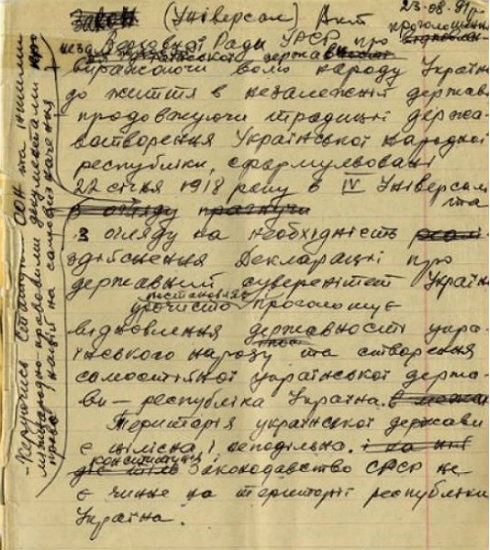 Закон (Універсал) Акт 23-08-91р.
проголошення
Верховної Ради УРСР про
незалежності української держави
виражаючи волю народу України
до життя в незалежній державі
продовжуючи традиції держа-
вотворення Української народної
республіки, сформульовані
22 січня 1918 року в IV Універсалі
та
в огляду прагнучи
з огляду на необхідність
здійснення Декларації про
державний суверенітет України
постановляє
урочисто проголошує
відновлення державності укра-
їнського народу та створення
самостійної української держа-
ви – республіка Україна.
Територія української держави
є цілісна і неподільна.
конституція і
законодавство СРСР не
є чинне на території республіки
Україна.
Керуючись Статутом ООН та іншими
міжнародно-правовими документами про
право націй на самовизначення